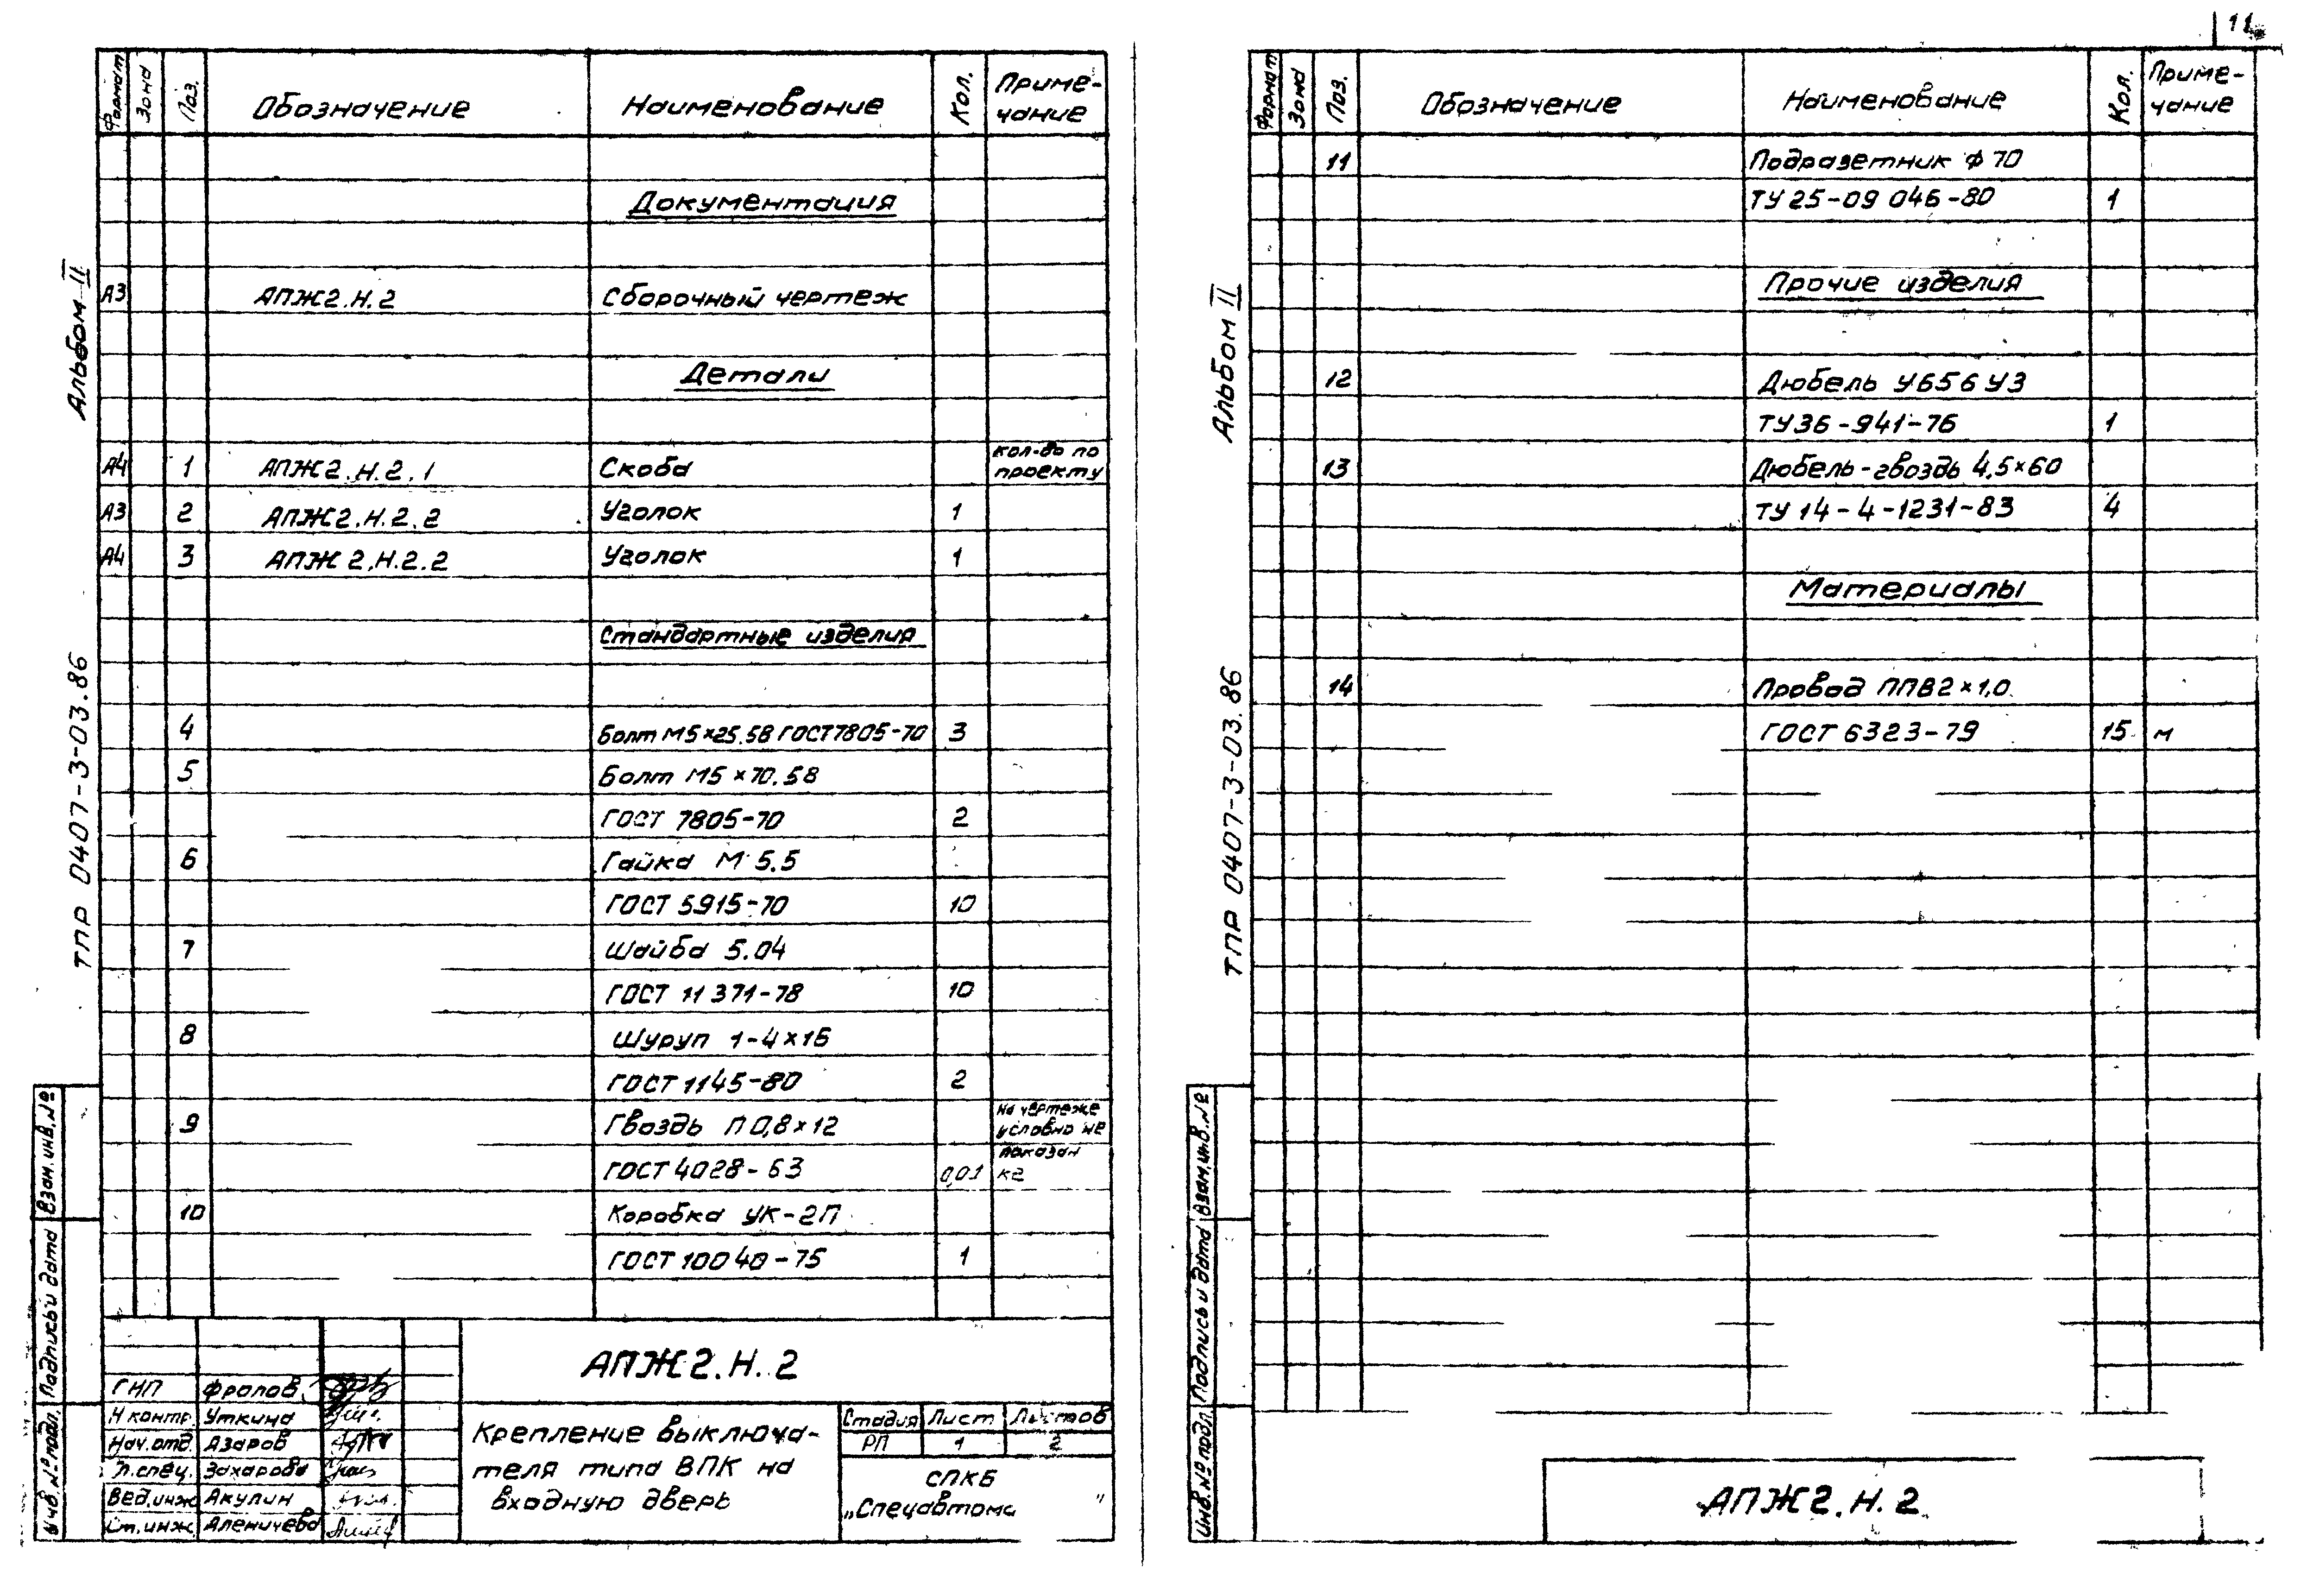 11
Формат Зона Поз. Обозначение Наименование Кол. Приме-
чание
Документация
А3 АПЖ2.Н.2 Сборочный чертеж
Детали
А4 1 АПЖ2.Н.2.1 Скоба кол-во по
проекту
А3 2 АПЖ2.Н.2.2 Уголок 1
А4 3 АПЖ2.Н.2.2 Уголок 1
Стандартные изделия
4 Болт М5×25.58 ГОСТ7805-70 3
5 Болт М5×70.58
ГОСТ 7805-70 2
6 Гайка М5.5
ГОСТ 5915-70 10
7 Шайба 5.04
ГОСТ 11371-78 10
8 Шуруп 1-4×16
ГОСТ 1145-80 2
9 Гвоздь П 0,8×12 на чертеже
условно не
показан
ГОСТ 4028-63 0,01 кг
10 Коробка УК-2П
ГОСТ 10040-75 1
АПЖ2.Н.2
ГНП Фролов
Н контр. Уткина
Нач.отд. Азаров
Гл.спец. Захарова
Вед.инж Акулин
Ст.инж. Аленичева
Крепление выключа-
теля типа ВПК на
входную дверь
Стадия Лист Листов
РП 1 2
СПКБ
„Спецавтома "
Альбом II
ТПР 0407-3-03.86
Взам.инв.№
Подпись и дата
Инв.№подл.
Формат Зона Поз. Обозначение Наименование Кол. Приме-
чание
11 Подразетник ф 70
ТУ 25-09 046-80 1
Прочие изделия
12 Дюбель У656 У3
ТУ36-941-76 1
13 Дюбель-гвоздь 4,5×60
ТУ 14-4-1231-83 4
Материалы
14 Провод ППВ2×1,0
ГОСТ 6323-79 15 м
АПЖ2.Н.2
Альбом II
ТПР 0407-3-03.86
Взам.инв.№
Подпись и дата
Инв.№подл